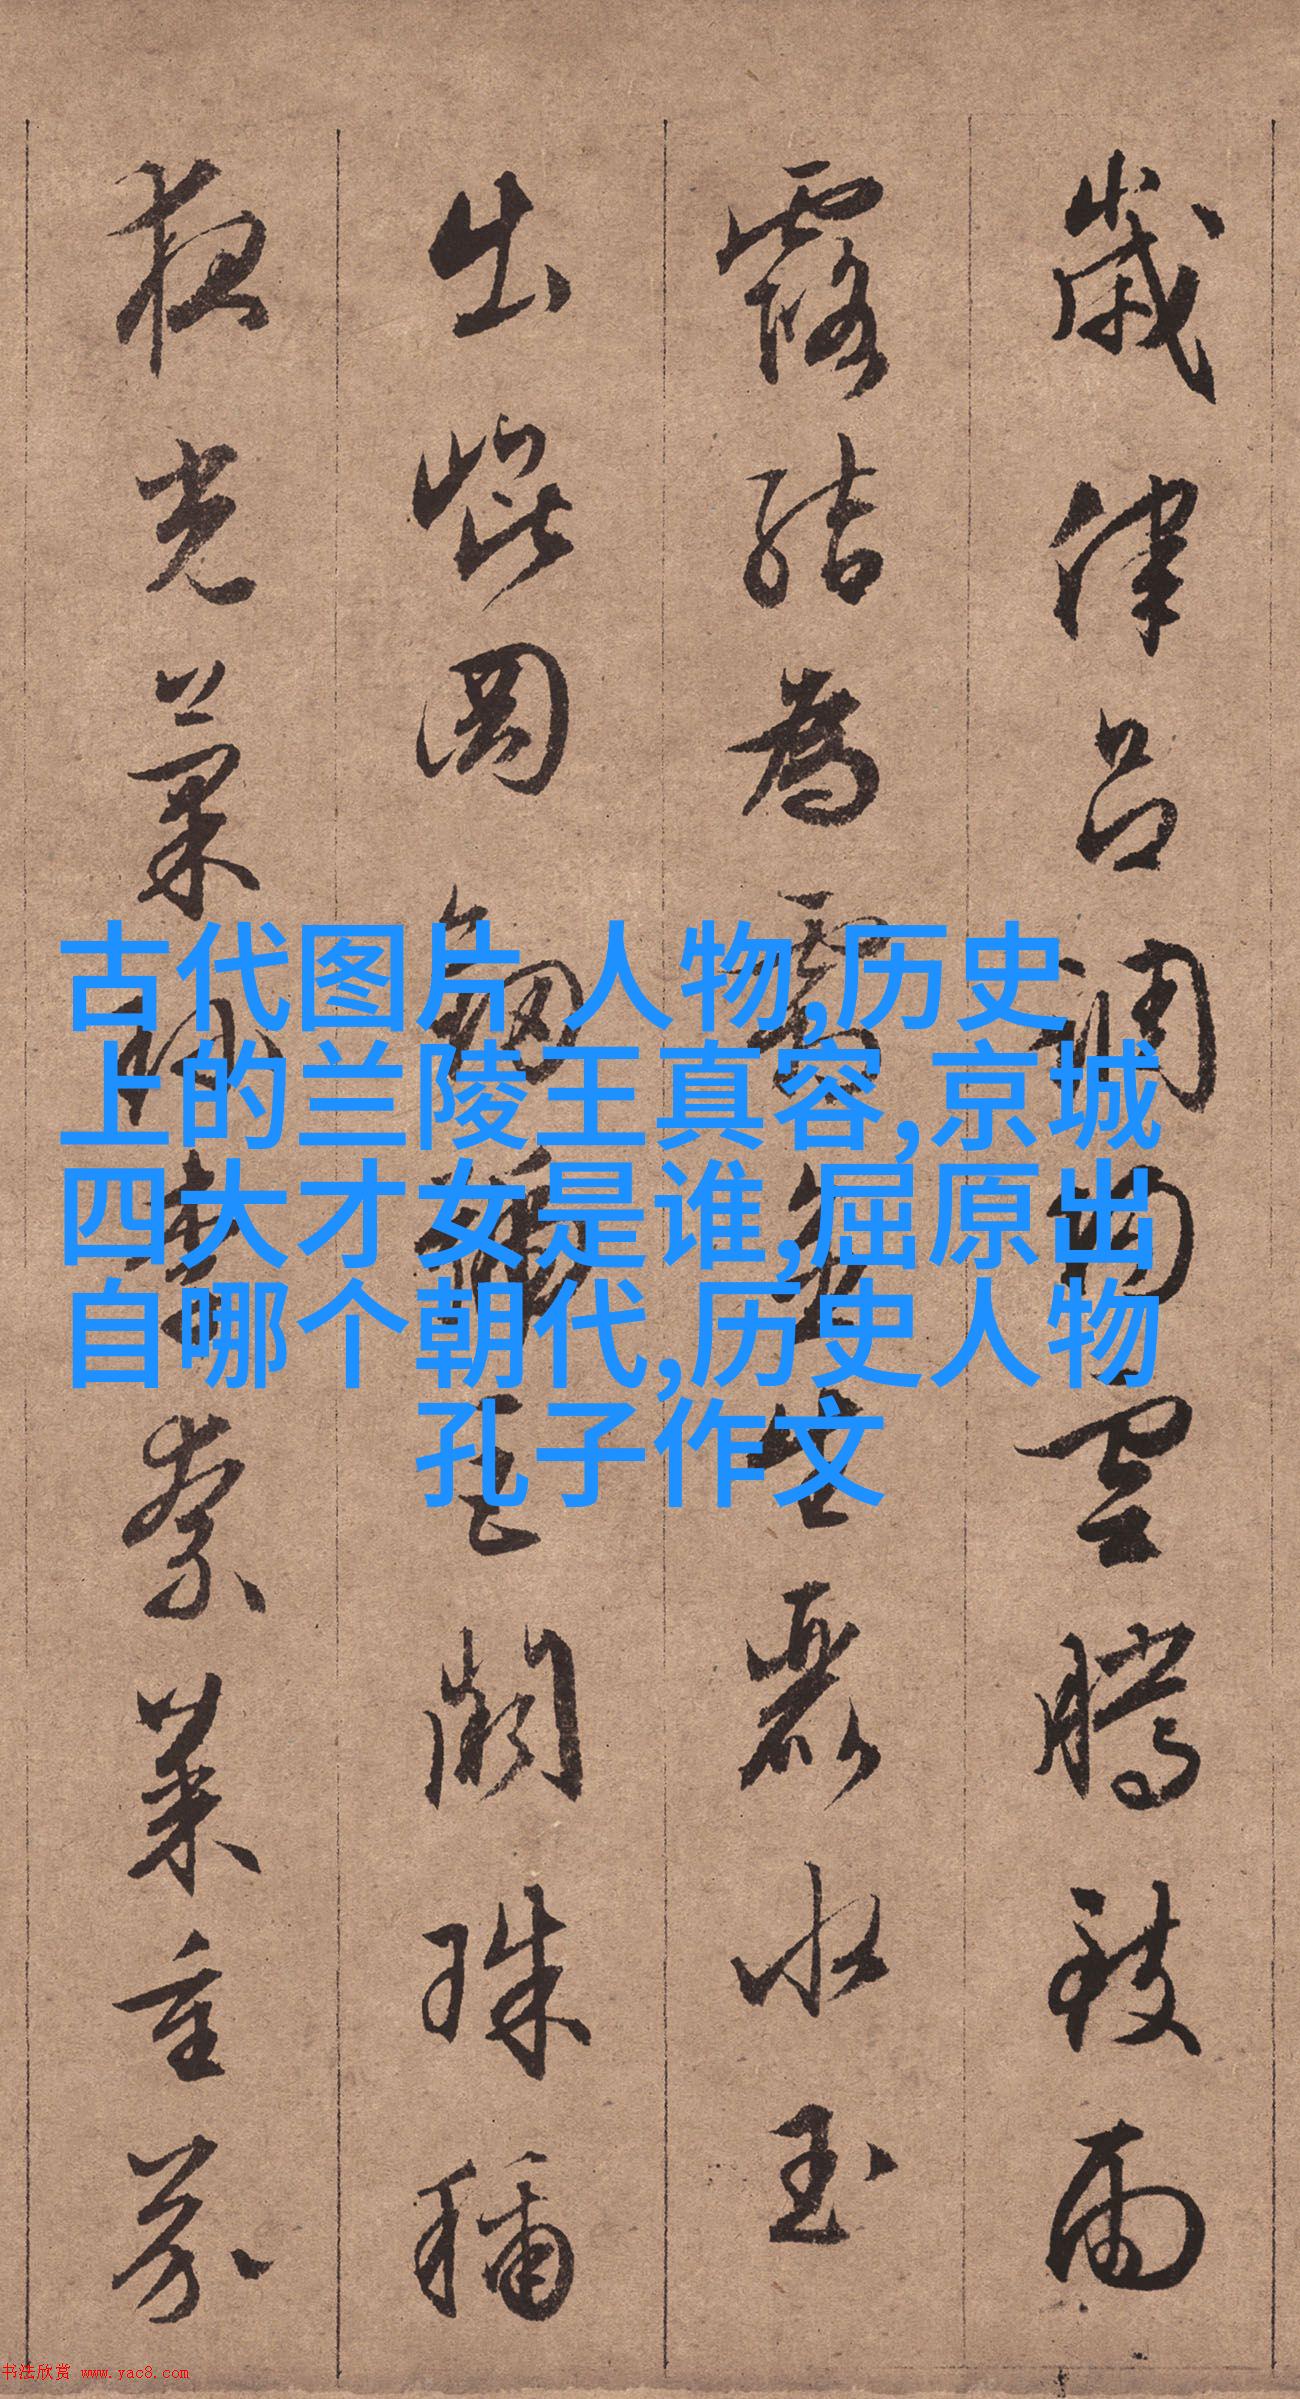 歲律呂調陽雲騰致雨
露結為霜金生麗水玉
出崐岡劍號巨闕珠稱
夜光菓珍李柰菜重芥
古代图片 人物,历史
上的兰陵王真容,京城
四大才女是谁,屈原出
自哪个朝代,历史人物
孔子作文
书法欣赏 www.yac8.com